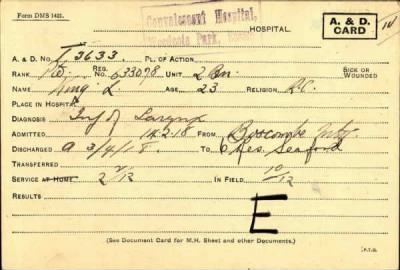 Form DMS 1421.
Convalescent Hospital,
Park,
HOSPITAL.
A. & D.
CARD
A. & D. No. T 3633 PL. OF ACTION
RANK Pte. REG. NO. 633098 UNIT 2 Bn. SICK OR WOUNDED
NAME King L. AGE 23 RELIGION R.C.
PLACE IN HOSPITAL
DIAGNOSIS Inf of Larynx
ADMITTED 12.2.18 FROM Boscombe
DISCHARGED a 3/4/18. TO 6 Res. Seaford
TRANSFERRED
SERVICE AT HOME 2 2/12 IN FIELD 10/12
RESULTS
E
(See Document Card for M.H. Sheet and other Documents.)
P.T.O.